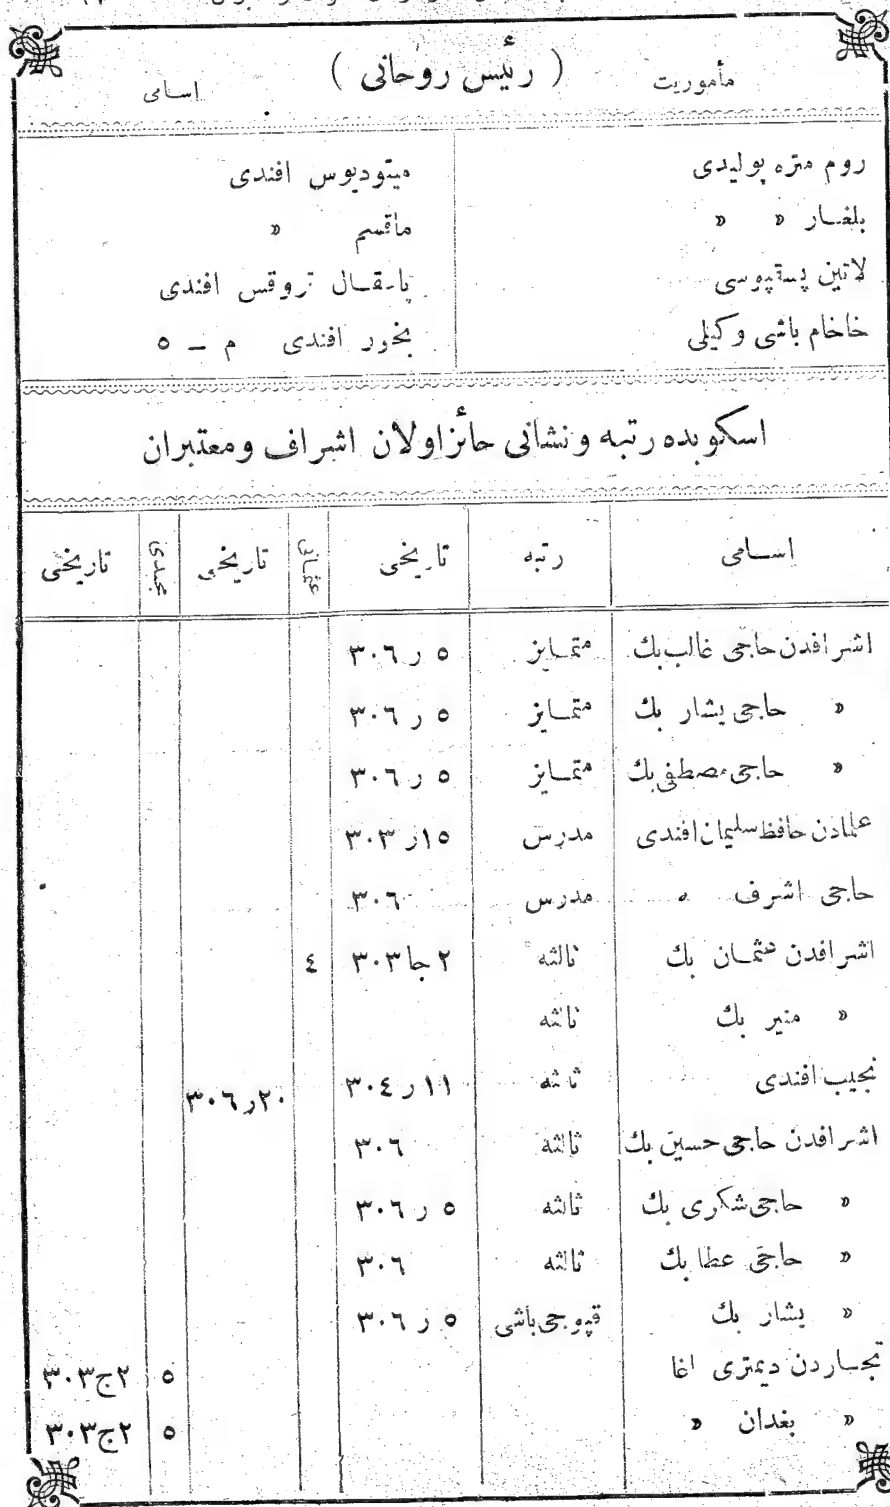 مأموریت ( رئیس روحانی ) اسامی
روم متره پولیدی میتودیوس افندی
بلغار » » ماقسم »
لاتین پستپوسی پاسقال تروقس افندی
خاخام باشی وکیلی بخور افندی م ــ ٥
اسکوبده رتبه ونشانی حائز اولان اشراف ومعتبران
اسامی رتبه تاریخی عثمانی تاریخی مجیدی تاریخی
اشرافدن حاجی غالب بك متمایز ٥ ر ٣٠٦
» حاجی یشار بك متمایز ٥ ر ٣٠٦
» حاجی مصطفی بك متمایز ٥ ر ٣٠٦
علمادن حافظ سلیمان افندی مدرس ١٥ ر ٣٠٣
حاجی اشرف » مدرس ٣٠٦
اشرافدن عثمان بك ثالثه ٢ جا ٣٠٣ ٤
» منیر بك ثالثه
نجیب افندی ثالثه ١١ ر ٣٠٤ ٢٠ ر ٣٠٦
اشرافدن حاجی حسین بك ثالثه ٣٠٦
» حاجی شکری بك ثالثه ٥ ر ٣٠٦
» حاجی عطا بك ثالثه ٣٠٦
» یشار بك قپوجی باشی ٥ ر ٣٠٦
تجاردن دیمتری اغا ٥ ٢ ج ٣٠٣
» بغدان » ٥ ٢ ج ٣٠٣